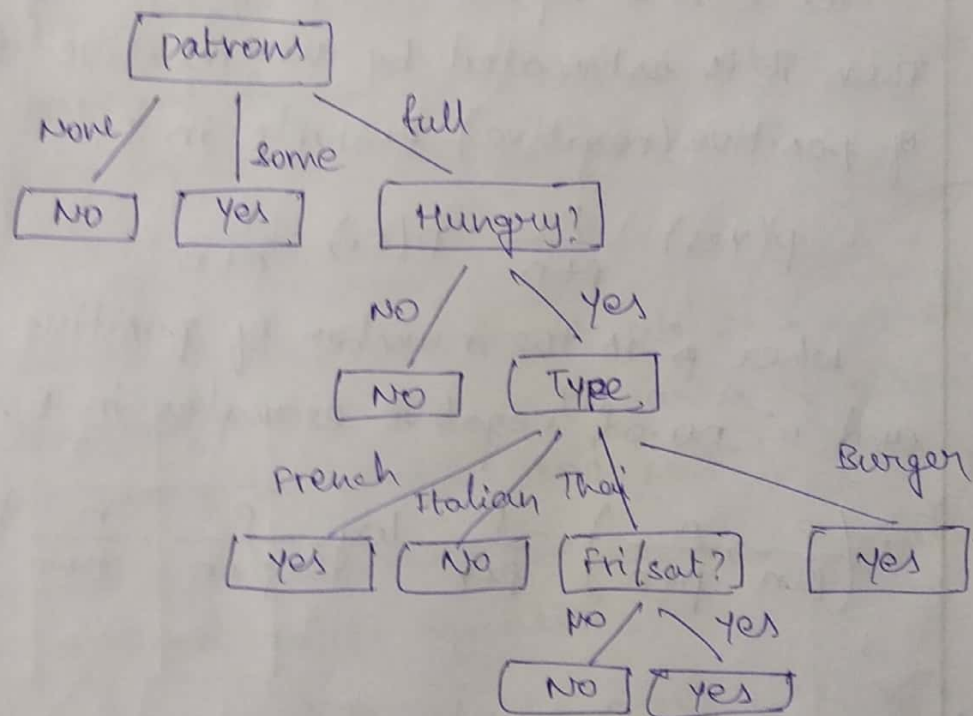 patrons
None some full
No Yes Hungry?
NO Yes
NO Type
French Italian Thai Burger
Yes No Fri/sat? Yes
NO Yes
NO Yes